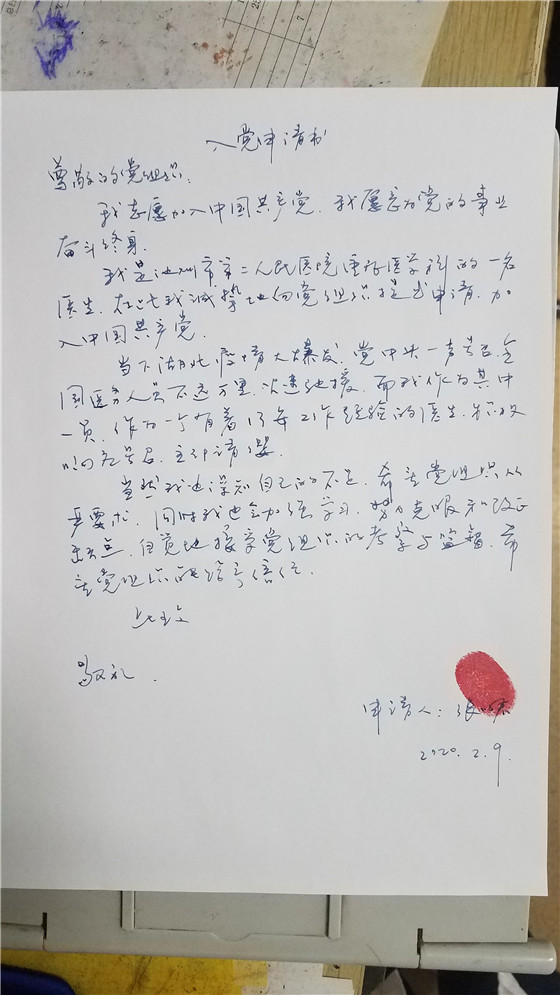 入党申请书
尊敬的党组织：
我志愿加入中国共产党，我愿意为党的事业
奋斗终身。
我是池州市第二人民医院重症医学科的一名
医生，在此我诚挚地向党组织提出申请，加
入中国共产党。
当下湖北疫情大爆发，党中央一声号召，全
国医务人员不远万里，火速驰援，而我作为其中
一员，作为一个有着13年工作经验的医生，积极
响应号召，主动请缨。
当然我也深知自己的不足，希望党组织从
严要求，同时我也会加强学习，努力克服和改正
缺点，自觉地接受党组织的考察与监督，希
望党组织能给予信任。
此致
敬礼．
申请人：张
2020.2.9.